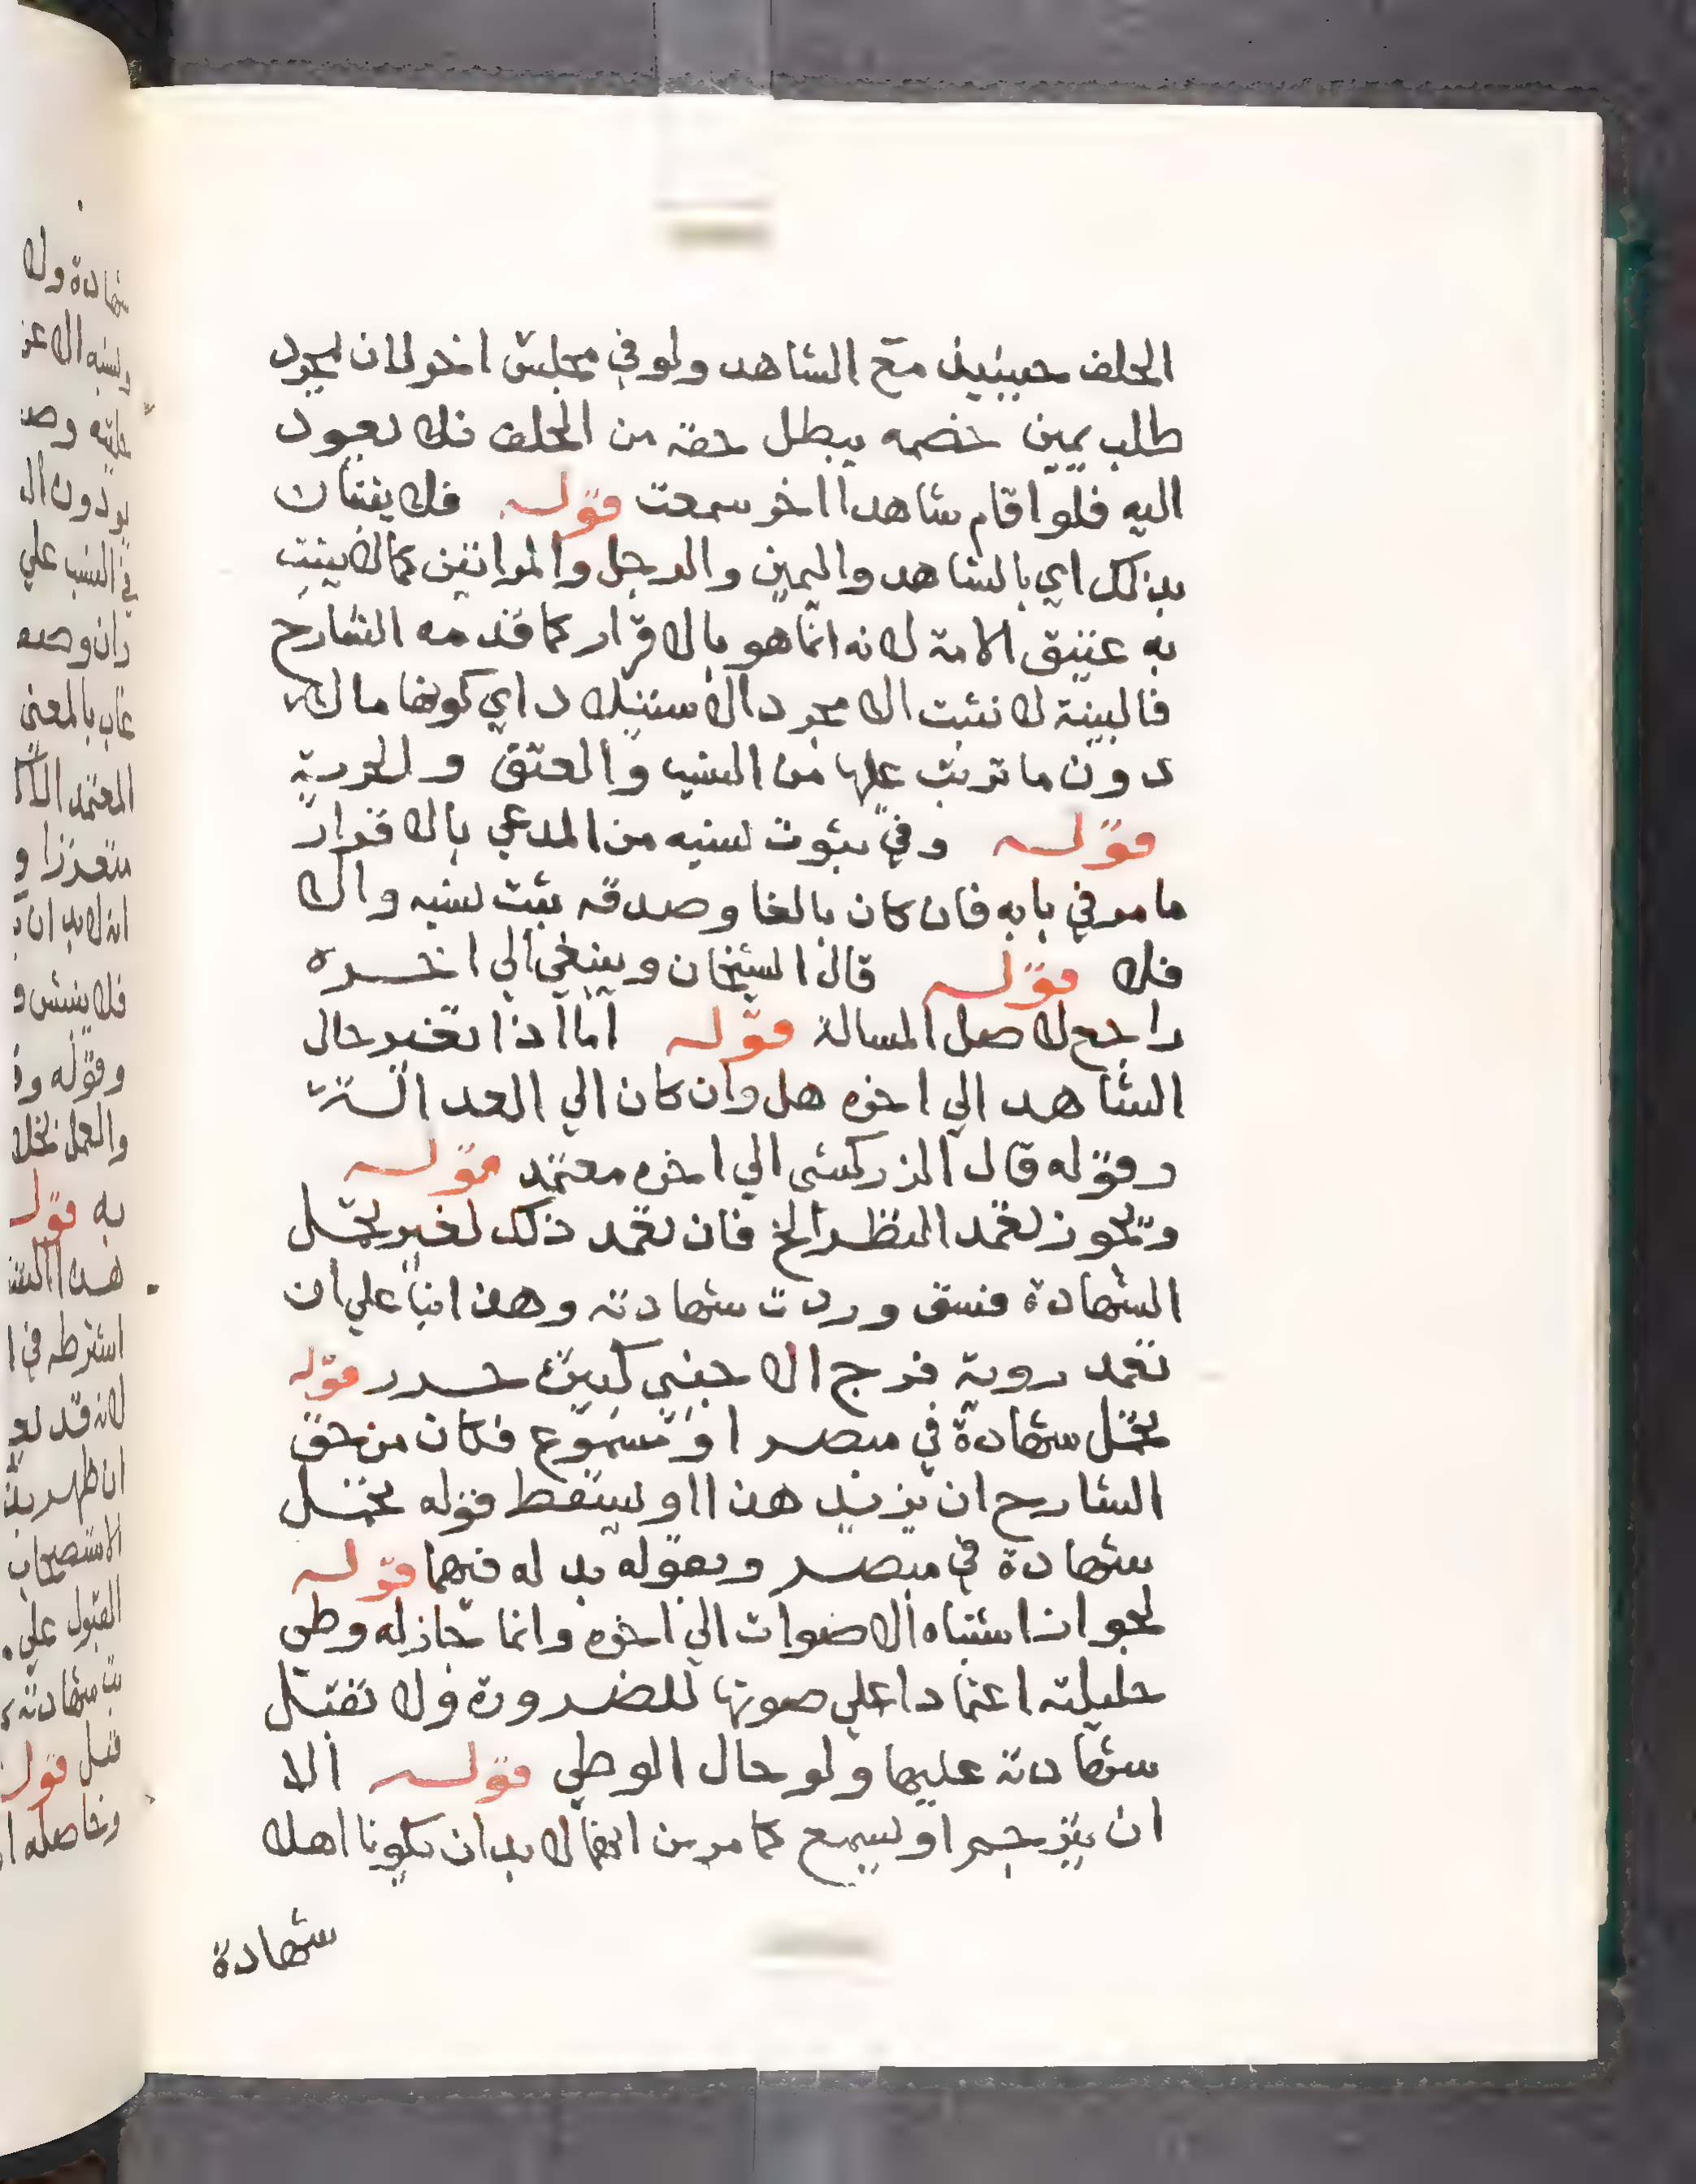 الحلف حينيذ مع الشاهد ولو في مجلس اخر لان مجرد
طلب يمين خصمه يبطل حقه من الحلف فلا يعود
اليه فلو اقام شاهدا اخر سمعت قوله فلا يثبتان
بذلك اي بالشاهد واليمين والرجل والمراتين كما لا يثبت
به عتيق الامة لانه انما هو بالاقرار كما قدمه الشارح
فالبينة لا تثبت الا مجرد الاستيلاد اي كونها مالا
دون ما ترتب عليها من النسب والعتق والحرية
قوله وفي ثبوت نسبه من المدعي بالاقرار
ما مر في بابه فان كان بالغا وصدقه ثبت نسبه والا
فلا قوله قال الشيخان وينبغي الي اخره
راجع لاصل المسالة قوله اما اذا تغير حال
الشاهد الي اخره هل وان كان الي العدالة
وقوله قال الزركشي الي اخره معتمد قوله
وتجوز تعمد النظر الخ فان تعمد ذلك لغير تحمل
الشهادة فسق وردت شهادته وهذا بنا علي ان
تعمد روية فرج الاجنبي كبيرة حرر قوله
تحمل شهادة في مبصر او مسموع فكان من حق
الشارح ان يزيد هذا او يسقط قوله تحمل
شهادة في مبصر ويقوله بدله فيهما قوله
لجواز اشتباه الاصوات الي اخره وانما جاز له وطي
حليلته اعتمادا علي صوتها للضرورة ولا تقبل
شهادته عليها ولو حال الوطي قوله الا
ان يترجم او يسمع كما مر من انهما لا بد ان يكونا اهلا
شهادة